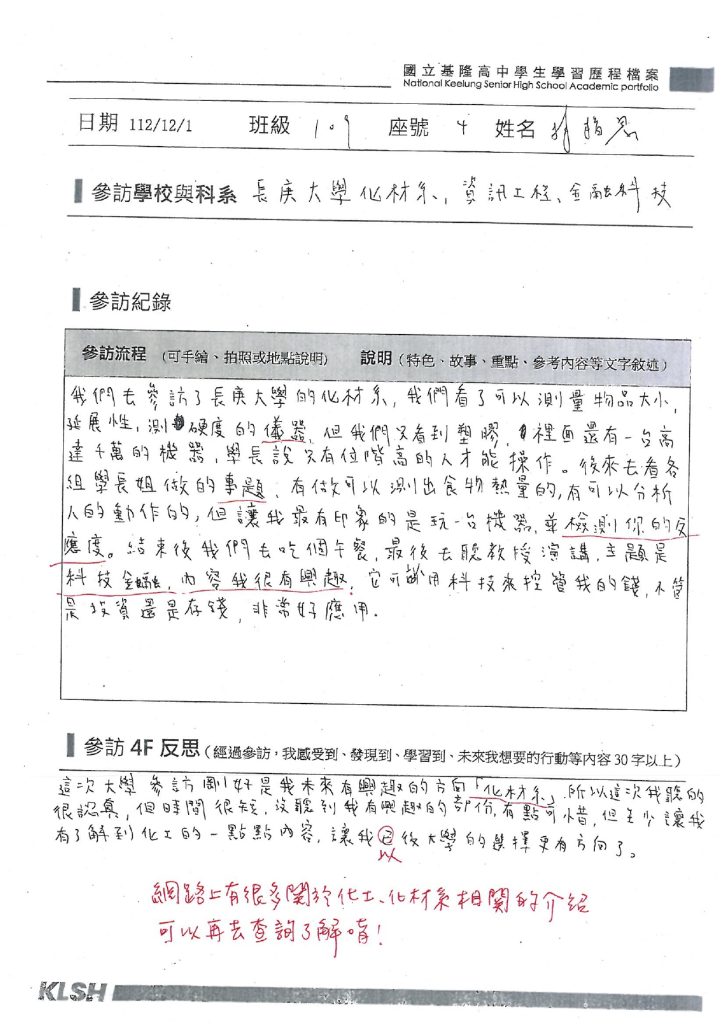 國立基隆高中學生學習歷程檔案
National Keelung Senior High School Academic portfolio
日期 112/12/1 班級 109 座號 4 姓名
參訪學校與科系 長庚大學化材系、資訊工程、金融科技
參訪紀錄
參訪流程 (可手繪、拍照或地點說明) 說明 (特色、故事、重點、參考內容等文字敘述)
我們去參訪了長庚大學的化材系,我們看了可以測量物品大小,
延展性,測硬度的儀器,但我們只看到塑膠,裡面還有一台高
達千萬的機器,學長說只有位階高的人才能操作。後來去看各
組學長姐做的專題,有做可以測出食物熱量的,有可以分析
人的動作的,但讓我最有印象的是玩一台機器,並檢測你的反
應度。結束後我們去吃個午餐,最後去聽教授演講,主題是
科技金融,內容我很有興趣,它可以用科技來控管我的錢,不管
是投資還是存錢,非常好應用.
參訪 4F 反思 (經過參訪,我感受到、發現到、學習到、未來我想要的行動等內容 30 字以上)
這次大學參訪剛好是我未來有興趣的方向「化材系」所以這次我聽的
很認真,但時間很短,沒聽到我有興趣的部份,有點可惜,但至少讓我
有了解到化工的一點點內容,讓我已後大學的選擇更有方向了。
以
網路上有很多關於化工、化材系相關的介紹
可以再去查詢了解唷!
KLSH